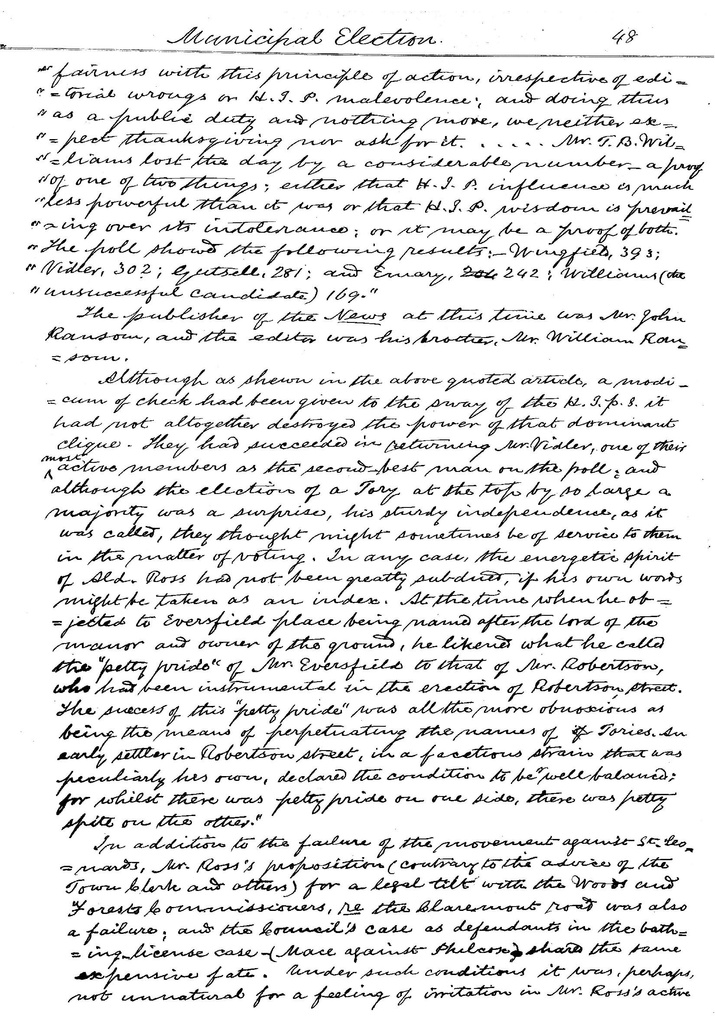 Municipal Election. 48
"fairness with this principle of action, irrespective of edi=
"=torial wrongs or H.I.P. malevolence; and doing this
"as a public duty and nothing more, we neither ex=
"=pect thanksgiving nor ask for it. . . . . . Mr. T. B. Wil=
"=liams lost the day by a considerable number – a proof
"of one of two things; either that H.I.P. influence is much
"less powerful than it was or that H.I.P. wisdom is prevail
"=ing over its intolerance; or it may be a proof of both.
"The poll showed the following results:- Wingfield, 393;
"Vidler, 302; Gutsell, 281; and Emary, 242; Williams (the
"unsuccessful candidate) 169."
The publisher of the News at this time was Mr. John
Ransom, and the editor was his brother, Mr. William Ran=
=som.
Although as shewn in the above quoted article, a modi=
=cum of check had been given to the sway of the H.I.p.s. it
had not altogether destroyed the power of that dominant
clique. They had succeeded in returning Mr. Vidler, one of their
most active members as the second-best man on the poll; and
although the election of a Tory at the top by so large a
majority was a surprise, his sturdy independence, as it
was called, they thought might sometimes be of service to them
in the matter of voting. In any case, the energetic spirit
of Ald. Ross had not been greatly subdued, if his own words
might be taken as an index. At the time when he ob=
=jected to Eversfield place being named after the lord of the
manor and owner of the ground, he likened what he called
the "petty pride" of Mr. Eversfield to that of Mr. Robertson,
who had been instrumental in the erection of Robertson street.
The success of this "petty pride" was all the more obnoxious as
being the means of perpetuating the names of Tories. An
early settler in Robertson street, in a facetious strain that was
peculiarly his own, declared the condition to be "well balanced;
for whilst there was petty pride on one side, there was petty
spite on the other."
In addition to the failure of the movement against St. Leo=
=nards, Mr. Ross's proposition (contrary to the advice of the
Town Clerk and others) for a legal tilt with the Woods and
Forests Commissioners, re the Claremont road was also
a failure; and the Council's case as defendants in the bath=
=ing-license case – (Mace against Philcox) share the same
expensive fate. Under such conditions it was, perhaps,
not unnatural for a feeling of irritation in Mr. Ross's active